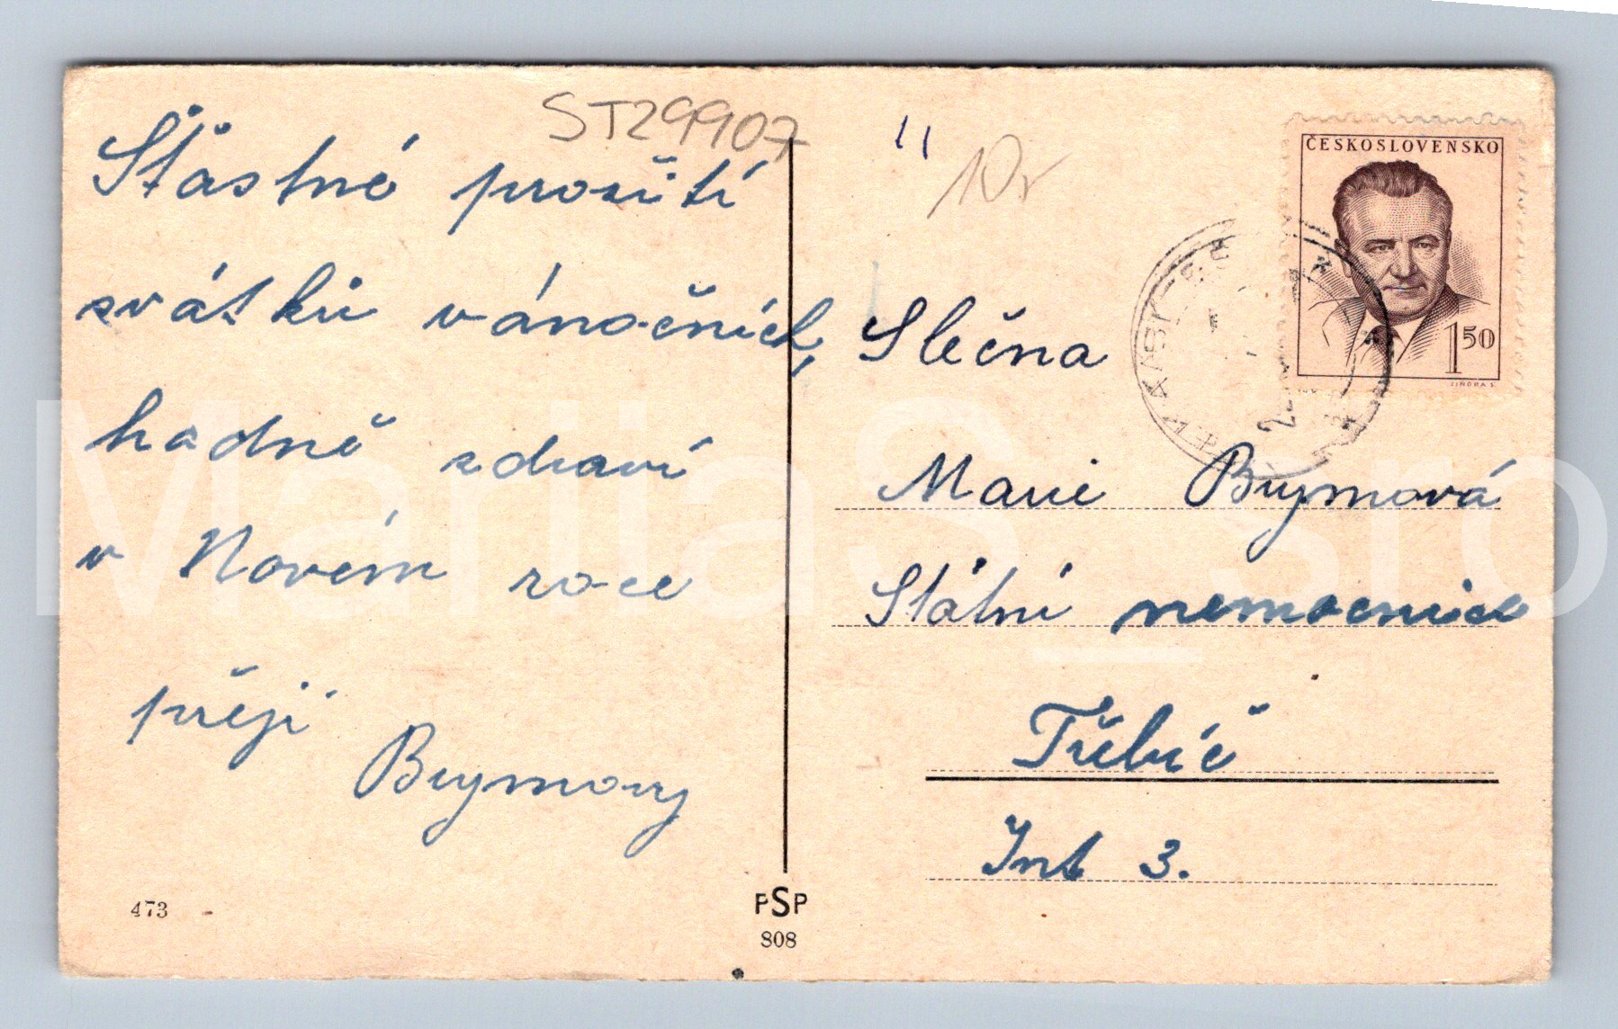 ST29907
Šťastné prožití
svátků vánočních,
hodně zdraví
v Novém roce
přeji
Brymovy
473
PSP
808
11
10,-
ČESKOSLOVENSKO
1 50
JINDRA S.
Slečna
Marie Brymová
Státní nemocnice
Třebíč
Int 3.
MarijaS_sro